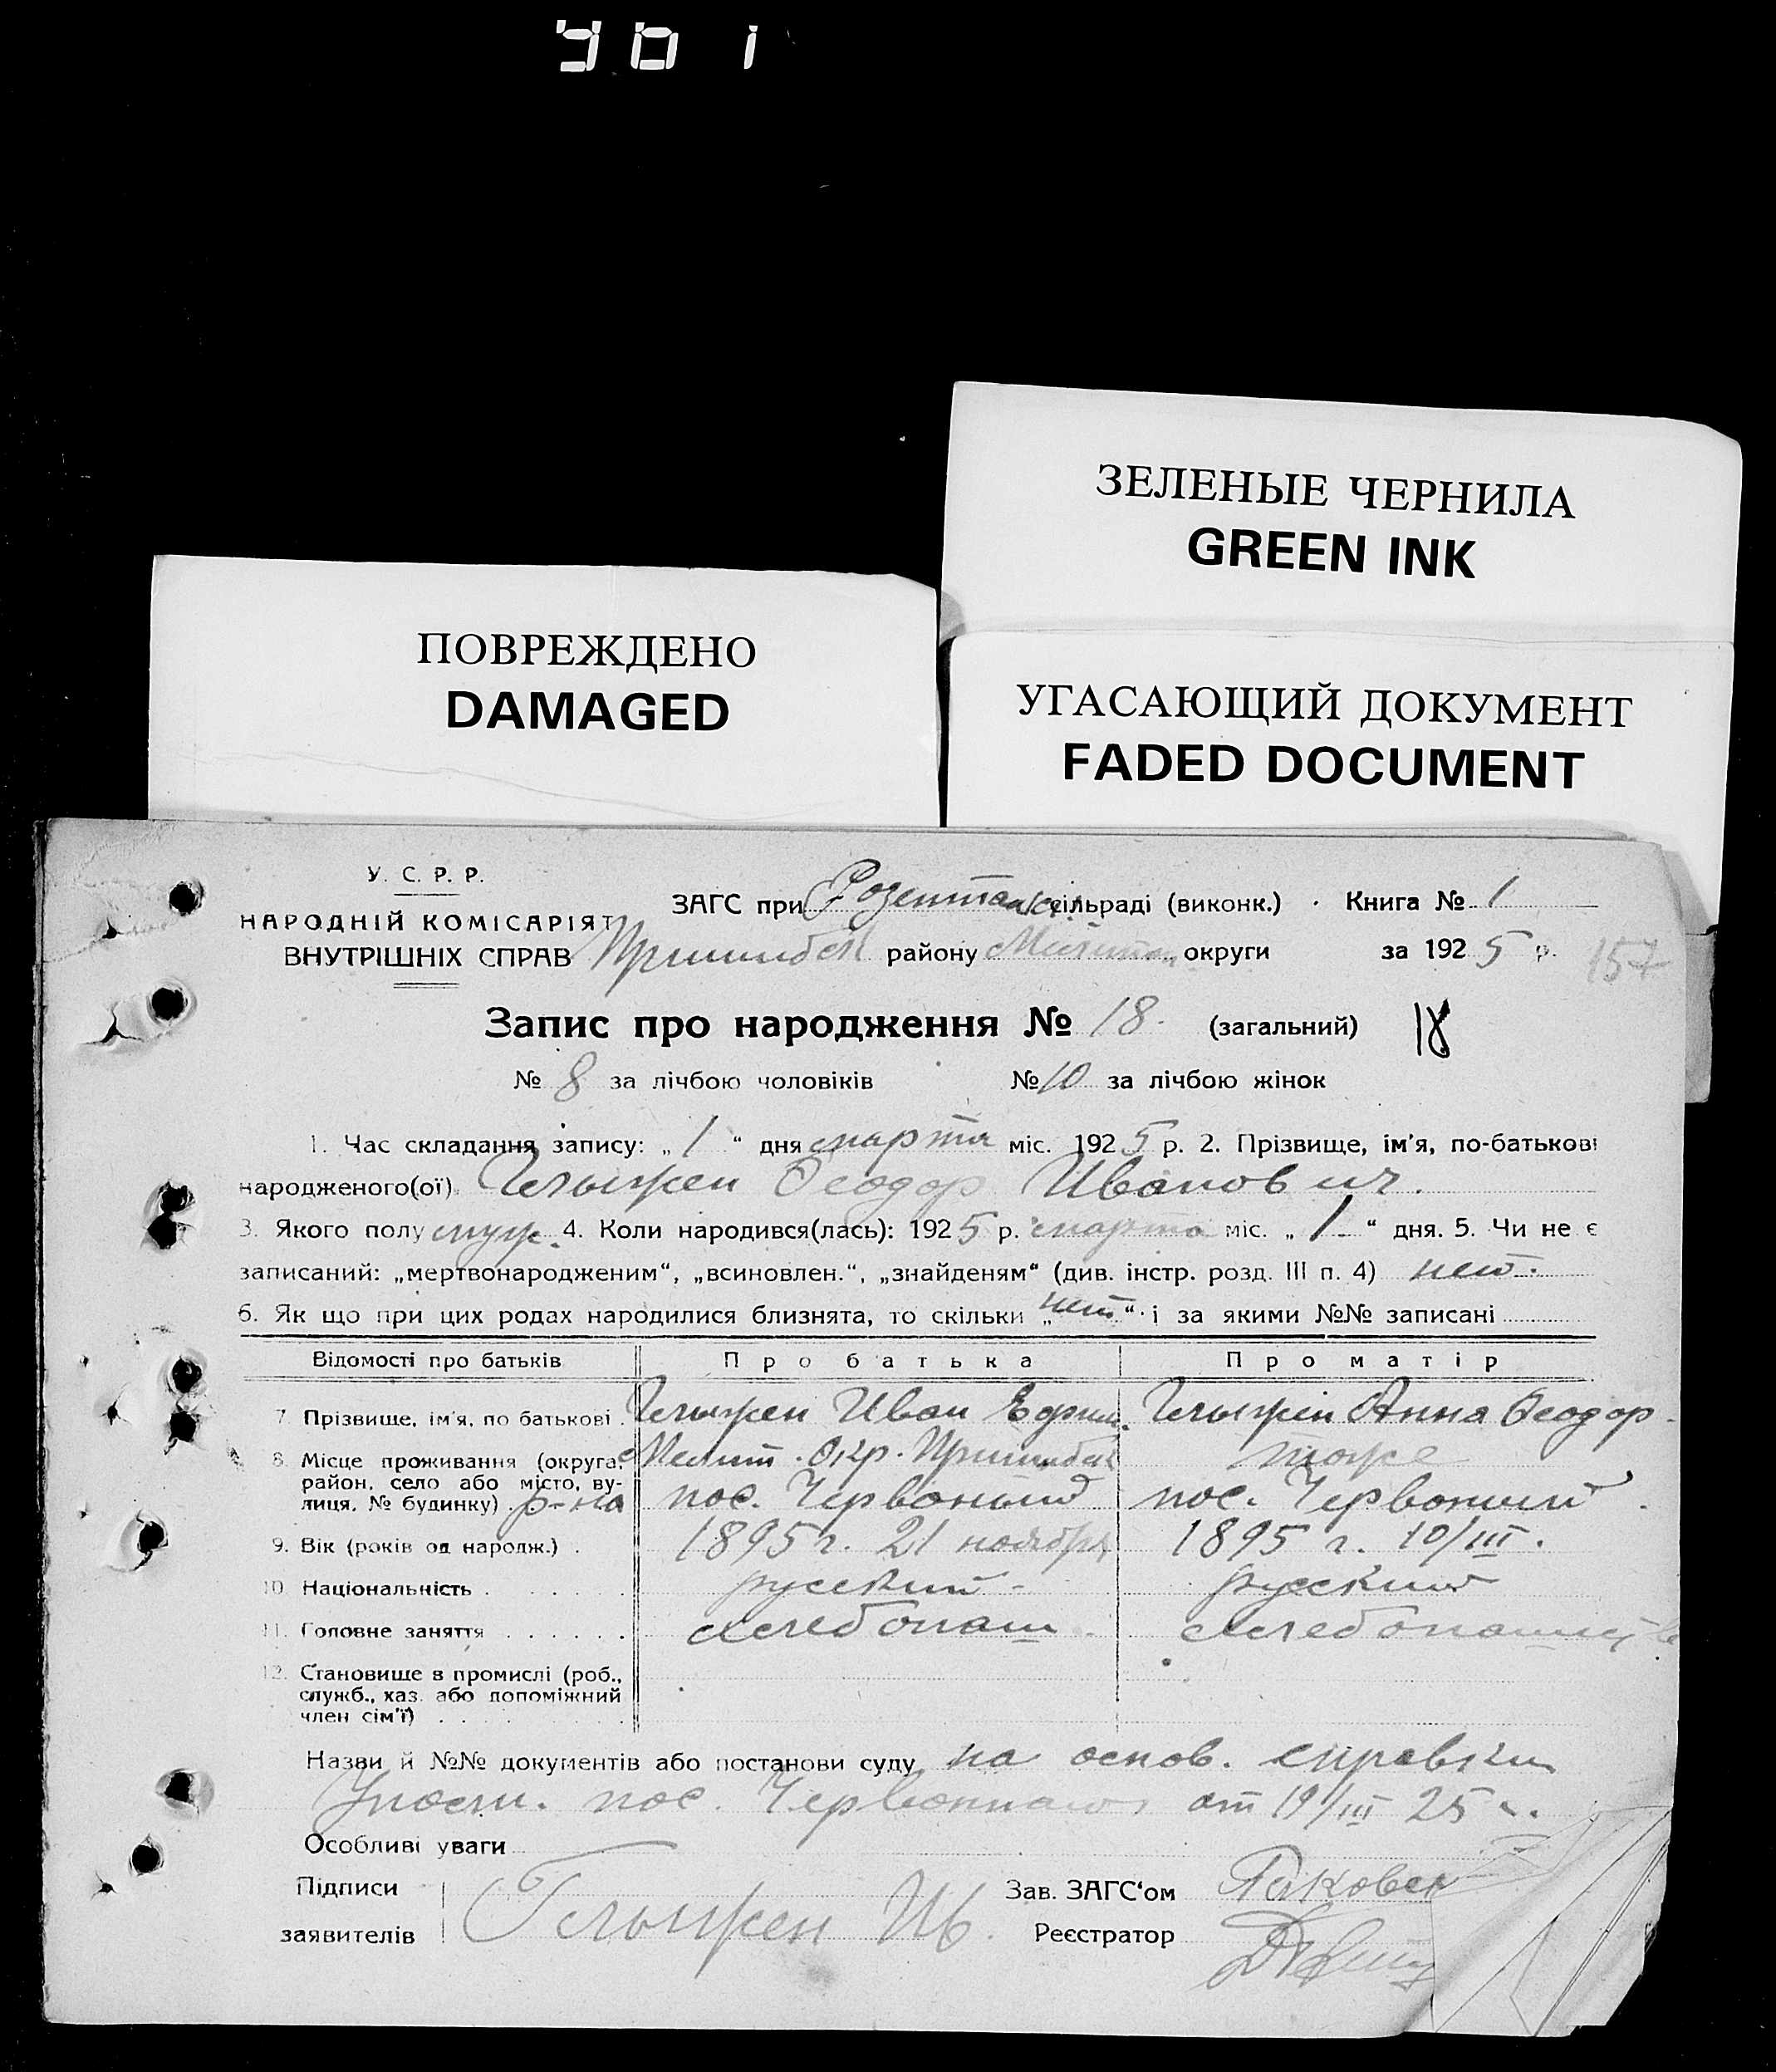 ЗЕЛЕНЫЕ ЧЕРНИЛА
GREEN INK
ПОВРЕЖДЕНО
DAMAGED
УГАСАЮЩИЙ ДОКУМЕНТ
FADED DOCUMENT
У. С. Р. Р.
НАРОДНІЙ КОМІСАРІЯТ
ВНУТРІШНІХ СПРАВ
ЗАГС при сільраді (виконк.) Книга № 1
Пришибск району Мелитоп округи за 1925 р. 157
Запис про народження № 18. (загальний) 18
№ 8 за лічбою чоловіків № 10 за лічбою жінок
1. Час складання запису: „1“ дня марта міс. 1925 р. 2. Прізвище, ім'я, по-батькові
народженого(ої) Феодор Иванович.
3. Якого полу муж. 4. Коли народився(лась): 1925 р. марта міс. „1“ дня. 5. Чи не є
записаний: „мертвонародженим“, „всиновлен.“, „знайденям“ (див. інстр. розд. III п. 4) нет.
6. Як що при цих родах народилися близнята, то скільки „нет“ і за якими №№ записані
Відомості про батьків Про батька Про матір
7. Прізвище, ім'я, по батькові Иван Ефим. Анна Феодор.
8. Місце проживання (округа, район, село або місто, вулиця, № будинку) р-на Мелит. Окр. Пришибск тоже
пос. Червоный пос. Червоный
9. Вік (років од народж.) 1895 г. 21 ноября 1895 г. 10/III.
10. Національність русский русский
11. Головне заняття хлебопаш
12. Становище в промислі (роб.,
служб., хаз. або допоміжний
член сім'ї)
Назви й №№ документів або постанови суду на основ. справки
пос. от 19/III 25 г.
Особливі уваги
Підписи
заявителів
Зав. ЗАГС'ом
Реєстратор